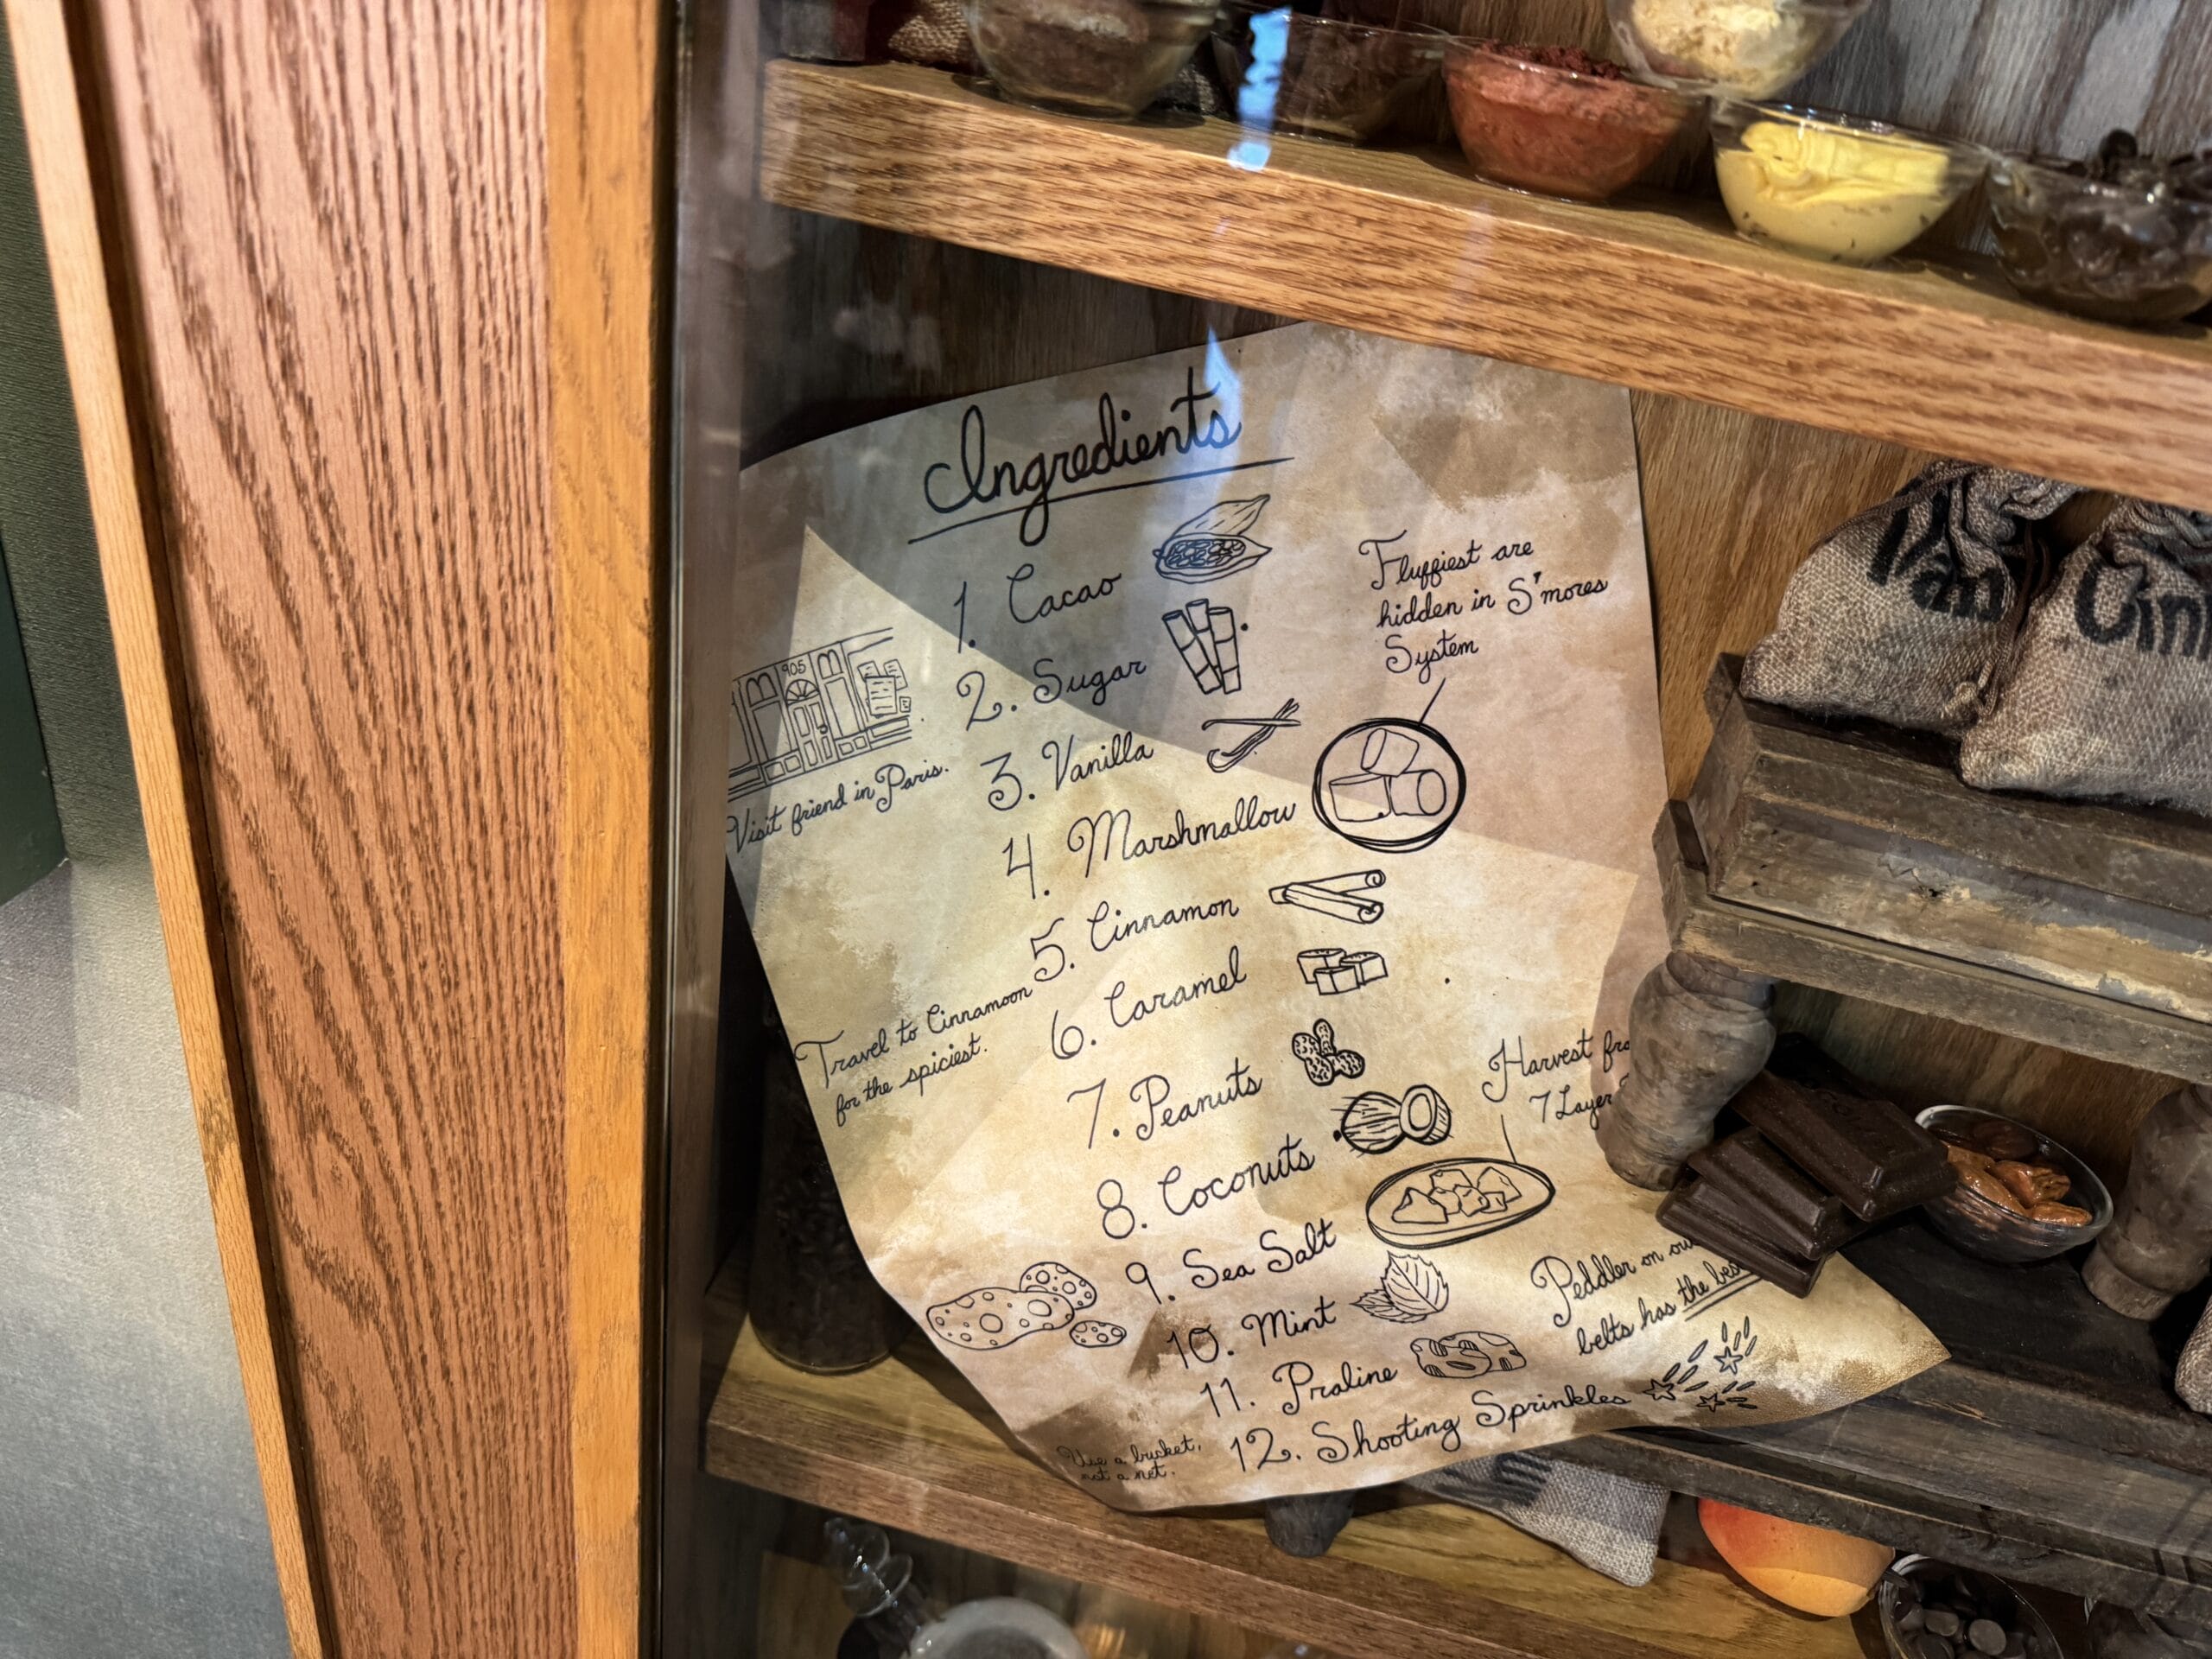 Ingredients
1. Cacao
2. Sugar
3. Vanilla
4. Marshmallow
5. Cinnamon
6. Caramel
7. Peanuts
8. Coconuts
9. Sea Salt
10. Mint
11. Praline
12. Shooting Sprinkles
905
Visit friend in Paris.
Fluffiest are
hidden in S'mores
System
Travel to Cinnamoon
for the spiciest.
Harvest
7 Layer
Peddler on
belts has the best
Use a bucket,
not a net.
Van
Cin